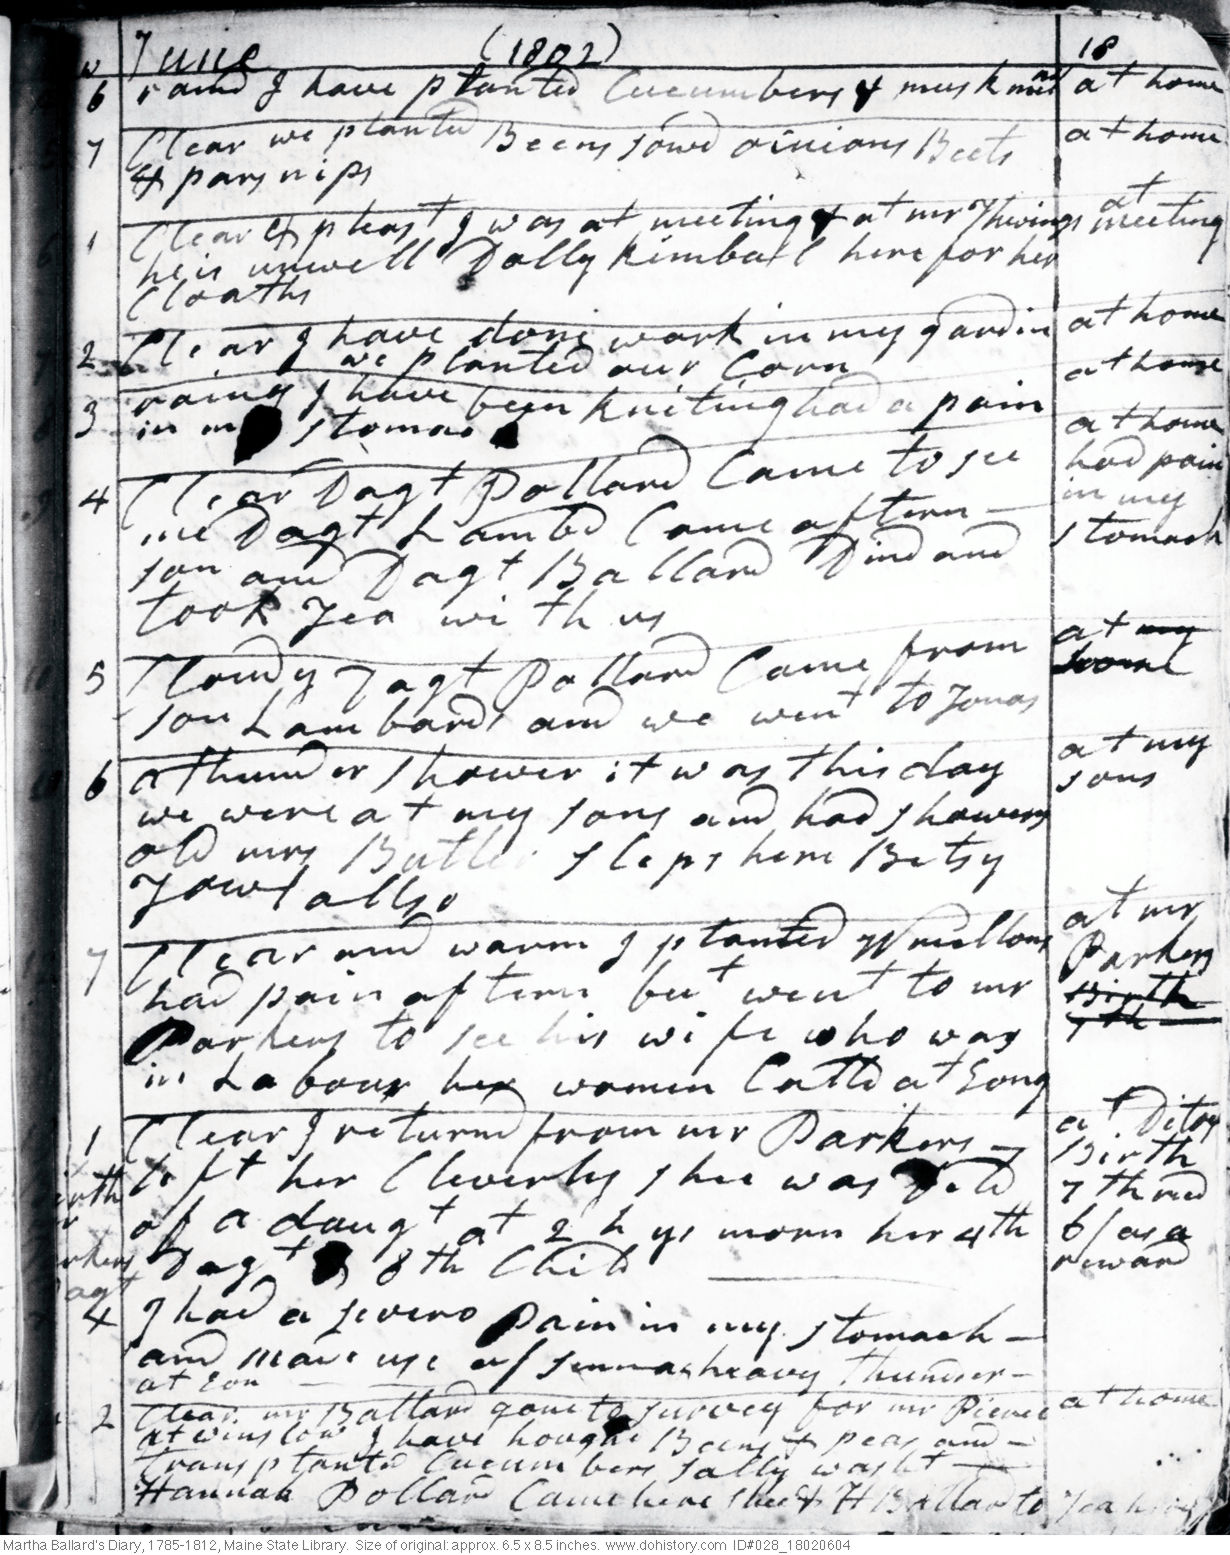 June (1802) 18
6 raind I have planted Cucumbers & musk at home
7 Clear we planted Beens sowd oinions Beets at home
& parsnips
1 Clear & pleast I was at meeting & at mr Thwings at meeting
he is unwell Dolly Kimball here for her
Cloaths
2 Clear I have done work in my gardin at home
we planted our Corn at home
3 rainy I have been kniting had a pain
in my stomac at home
4 Clear Dagt Pollard Came to see had pain
me Dagt Lambd Came aftern – in my
son and Dagt Ballard Dind and stomach
took Tea with us
5 Clowdy Dagt Pollard Came from at my
son Lambards and we went to Jonas
6 a thunder shower it was this day at my
we were at my sons and had showers sons
old mrs Butler sleps here Betsy
Towl allso
7 Clear and warm I planted W mellons at mr
had pain aftern but went to mr Parkers
Parkers to see his wife who was Birth
in Labour her women Calld at Eong 7th
1 Clear I returnd from mr Parkers – at Ditoy
left her Cleverly shee was Deld Birth
of a daugt at 2 h ys morn her 4th 7th recd
Dagt & 8th Child 6/ as a
reward
4 I had a severe pain in my stomach –
and made use of senna heavy thunder –
at Eon
2 Clear. mr Ballard gone to survey for mr Pierce at home
at winslow I have hough Beens & peas and –
transplanted Cucumbers Sally washt –
Hannah Pollard Came here shee & H Ballard to Tea here
Martha Ballard's Diary, 1785-1812, Maine State Library. Size of original: approx. 6.5 x 8.5 inches. www.dohistory.com ID#028_18020604